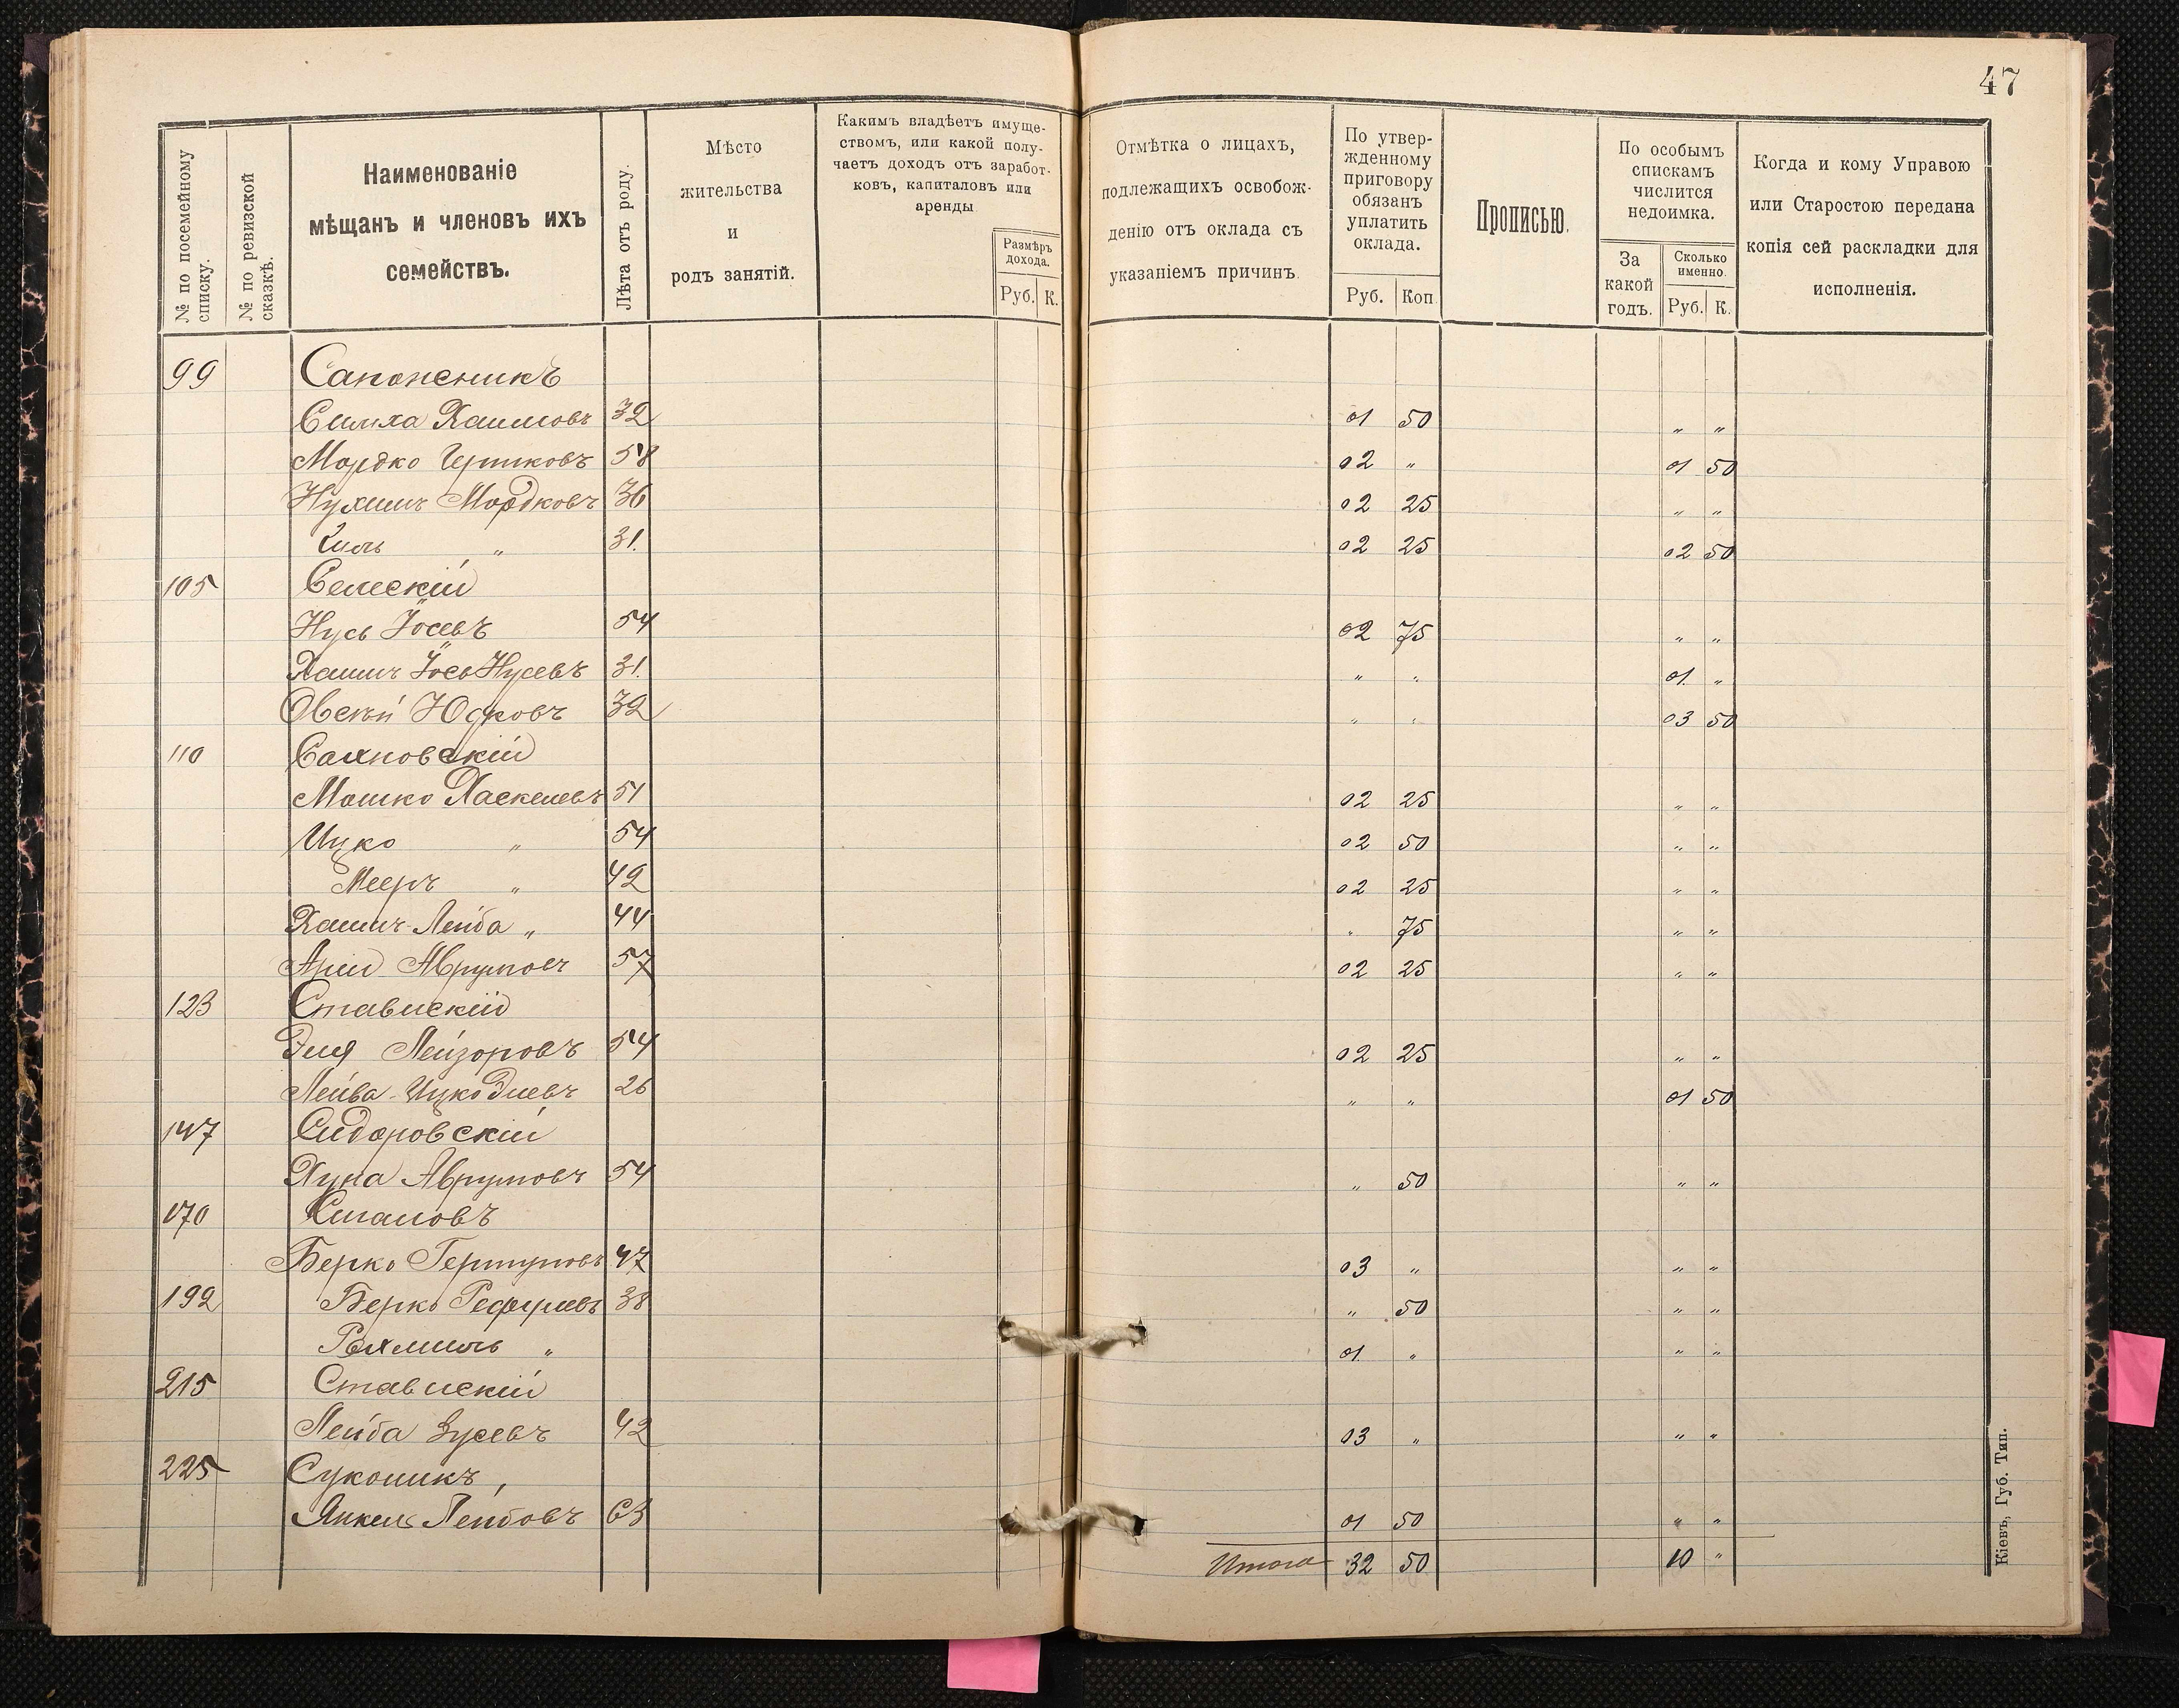 47
№ по посемейному списку.
№ по ревизской сказкѣ.
Наименованіе
мѣщанъ и членовъ ихъ
семействъ.
Лѣта отъ роду.
Мѣсто
жительства
и
родъ занятій.
Какимъ владѣетъ имуще-
ствомъ, или какой полу-
чаетъ доходъ отъ заработ-
ковъ, капиталовъ или
аренды
Размѣръ
дохода.
Руб. К.
Отмѣтка о лицахъ,
подлежащихъ освобож-
денію отъ оклада съ
указаніемъ причинъ.
По утвер-
жденному
приговору
обязанъ
уплатить
оклада.
Руб. Коп.
Прописью.
По особымъ
спискамъ
числится
недоимка.
За
какой
годъ.
Сколько
именно.
Руб. К.
Когда и кому Управою
или Старостою передана
копія сей раскладки для
исполненія.
99 Сапожникъ
Симха Хаимовъ 32 01 50 " "
Мордко 58 02 " 01 50
Нухимъ Мордковъ 36 02 25 " "
" 31. 02 25 02 50
105 Селескій
Нусь Іосевъ 54 02 75 " "
Хаимъ Іось Нусевъ 31. " " 01. "
Овсѣй Юдковъ 32 " " 03 50
110 Сахновскій
Мошко Хаскелевъ 51 02 25 " "
Ицко " 54 02 50 " "
Мееръ " 42 02 25 " "
Хаимъ-Лейба " 44 " 75 " "
Арій Аврумовъ 57 02 25 " "
123 Ставискій
Эля Лейзоровъ 54 02 25 " "
Лейва-Ицко Элевъ 26 " " 01 50
147 Сидоровскій
Хуна Аврумовъ 54 " 50 " "
170
Берко 47 03 " " "
192 Берко 38 " 50 " "
Рахмиль " 01. " " "
215 Ставискій
Лейба Зусевъ 42 03 " " "
225 Сукошкъ,
Янкель Лейбовъ 63 01 50 " "
Итого 32 50 10 "
Кіевъ, Губ. Тип.